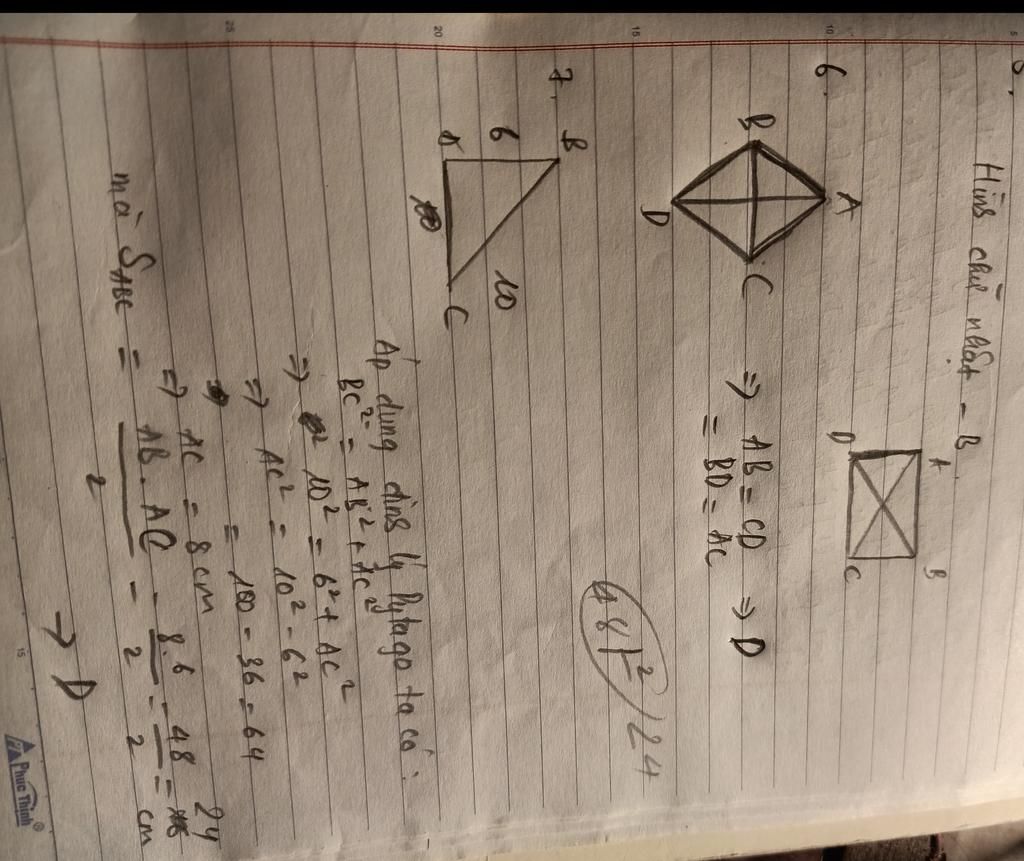 5.
Hình chữ nhật - B
A
B
D
C
6.
A
B
C
D
=> AB = CD => D
= BD = AC
48 2 / 24
7.
B
6
10
A
C
Áp dụng định lý Pytago ta có:
BC² = AB² + AC²
=> 10² = 6² + AC²
=> AC² = 10² - 6²
= 100 - 36 = 64
=> AC = 8 cm
mà S ABC = AB.AC / 2 = 8.6 / 2 = 48 / 2 = 24 cm
→ D
5
10
15
20
25
15
Phuc Thinh®